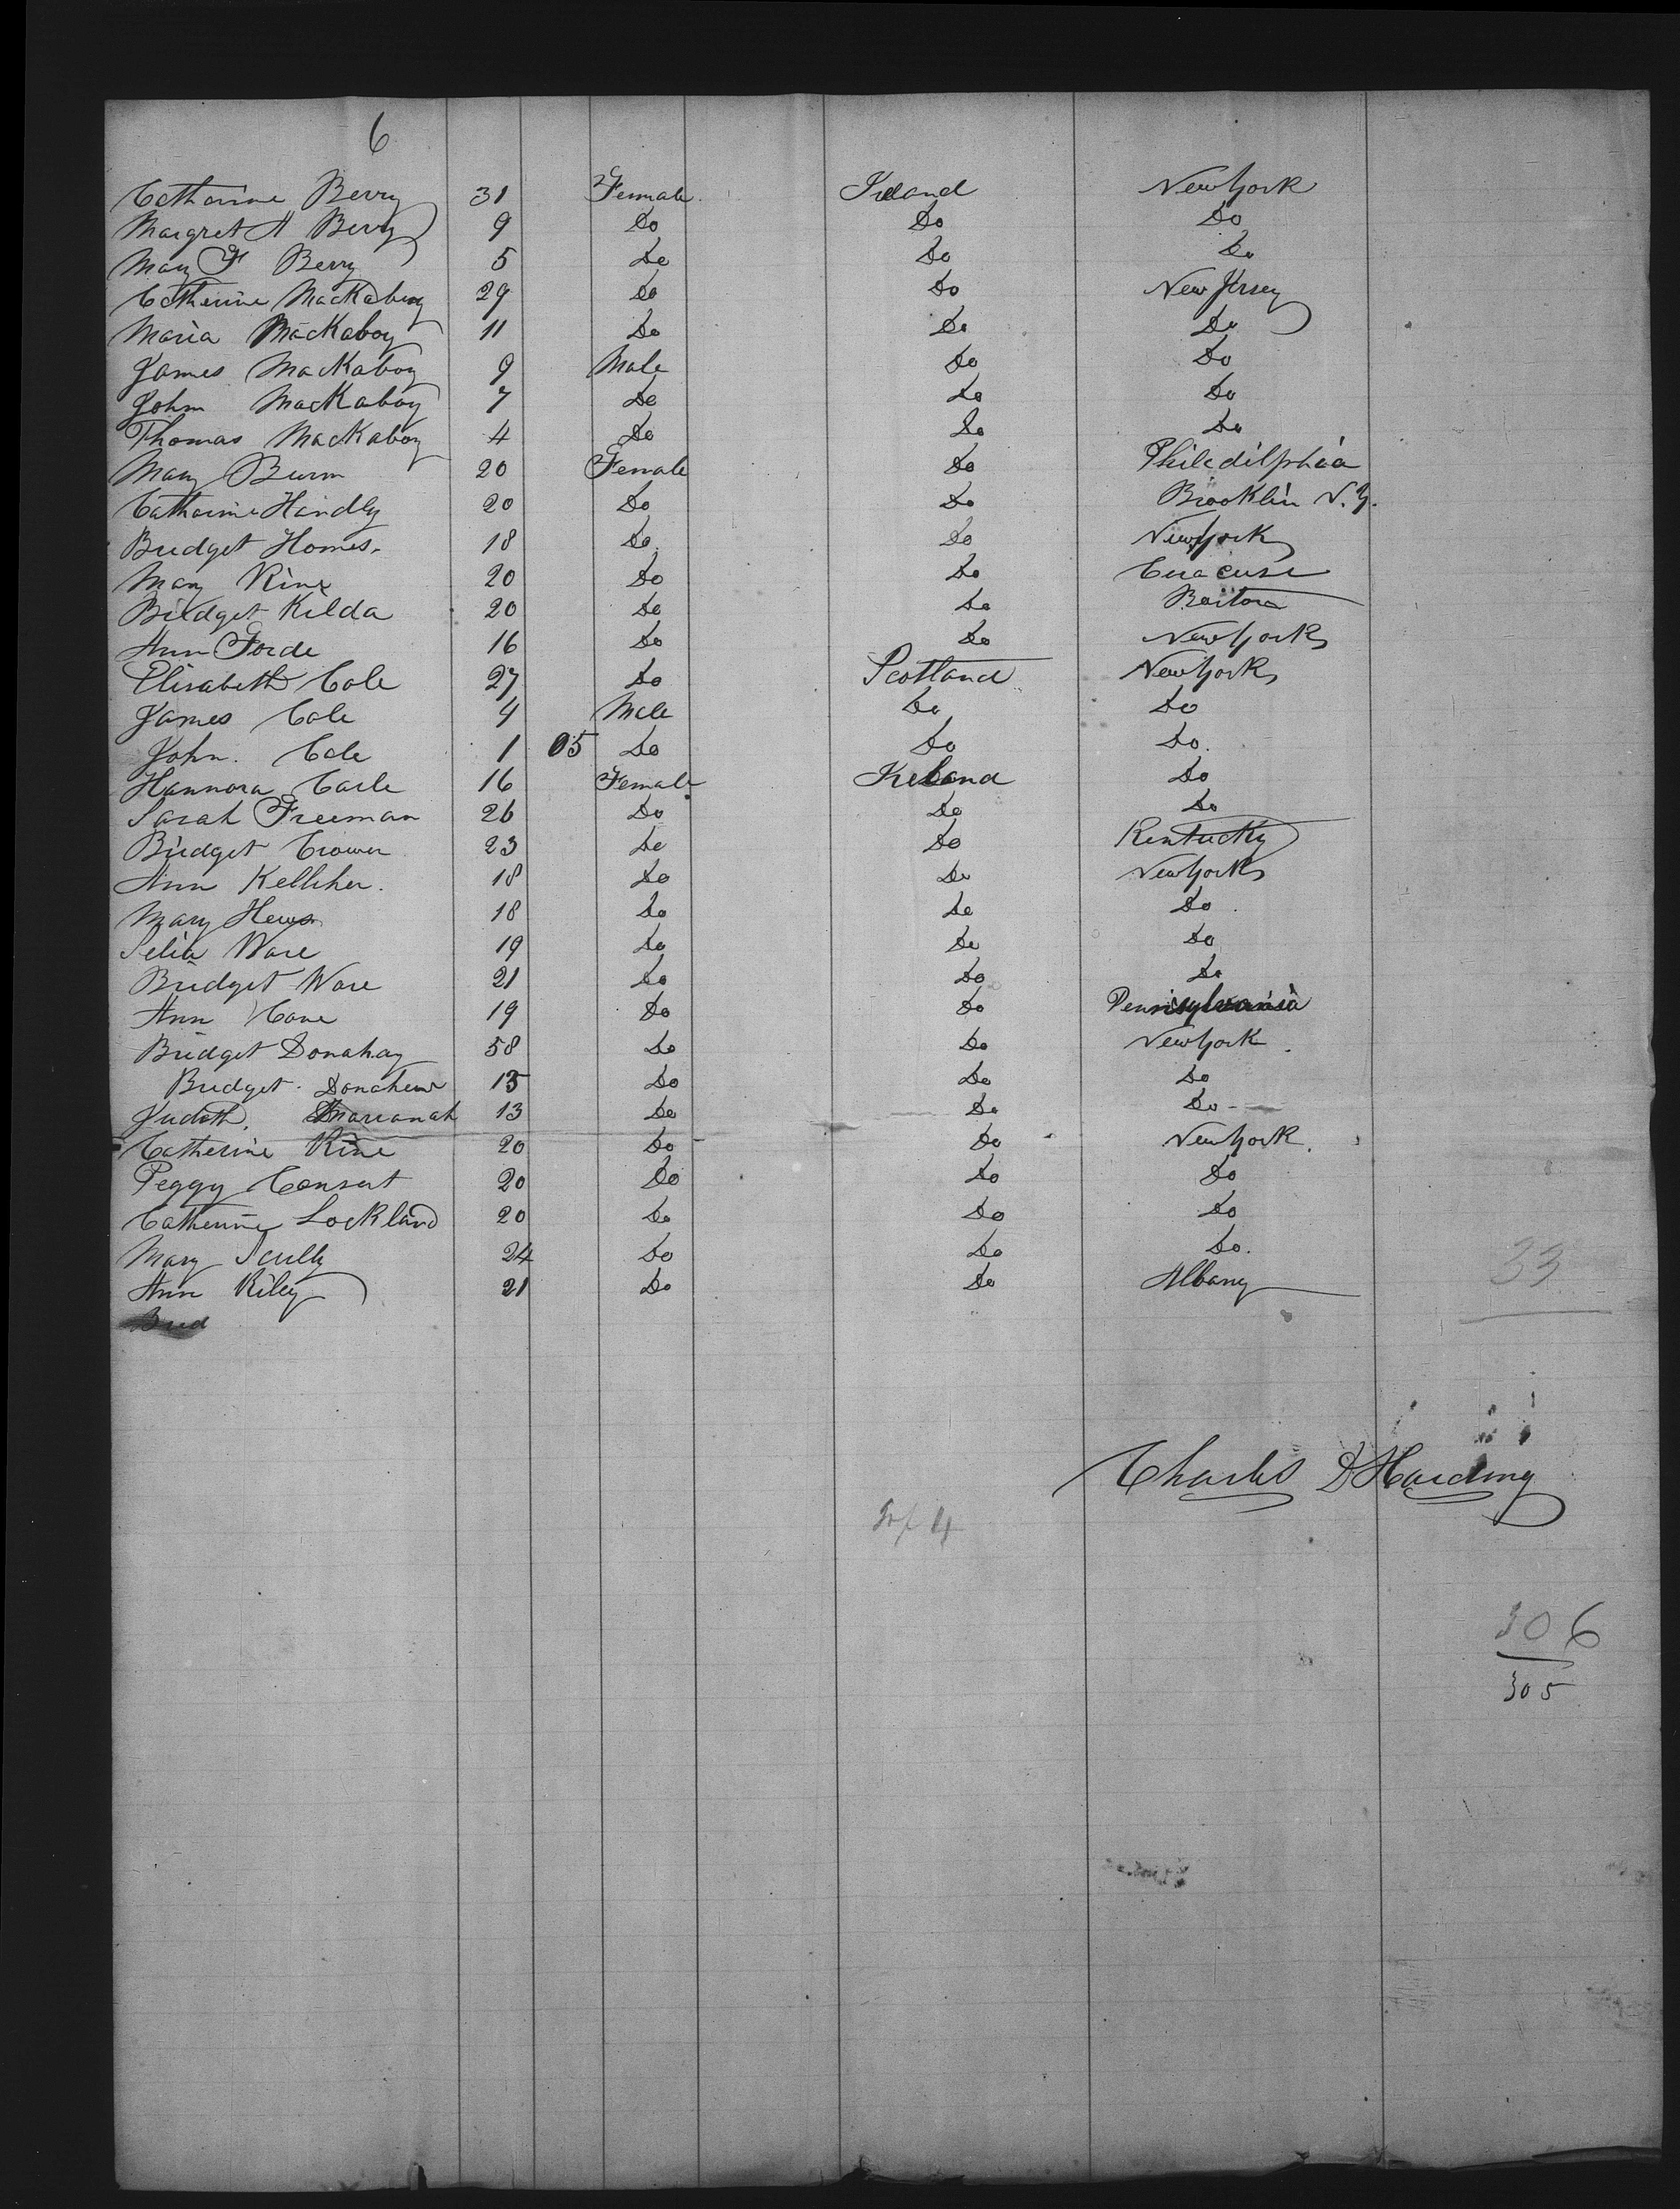 6
Catharine Berry 31 Female Ireland New York
Margret A Berry 9 Do Do Do
Mary F Berry 5 Do Do Do
Catherine Mackaboy 29 Do Do New Jersey
Maria Mackaboy 11 Do Do Do
James Mackaboy 9 Male Do Do
John Mackaboy 7 Do Do Do
Thomas Mackaboy 4 Do Do Do
Mary Burn 20 Female Do Philedilphia
Catharine Handly 20 Do Do Brooklin N.Y.
Bridget Homes. 18 Do Do New York
Mary Rine 20 Do Do Ciracuse
Bridget Kilda 20 Do Do
Ann Forde 16 Do Do New York
Elisabeth Cole 27 Do Scotland New York
James Cole 4 Male Do Do
John. Cole 1 05 Do Do Do.
Hannora Carle 16 Female Ireland Do
Sarah Freeman 26 Do Do Do
Bridget Crower 23 Do Do Kentucky
Ann Kelliher. 18 Do Do New York
Mary Hews 18 Do Do Do
Selia Ware 19 Do Do Do
Bridget Ware 21 Do Do Do
Ann Cane 19 Do Do Pennsylvania
Bridget Donahay 58 Do Do New York
Bridget. Donahew 15 Do Do Do
Judith. 13 Do Do Do
Catherine Rine 20 Do Do New York.
Peggy Consert 20 Do Do Do
Catherine Lockland 20 Do Do Do
Mary Scully 24 Do Do Do.
Ann Riley 21 Do Do Albany
33
Brid
Charles D Harding
4
306
305